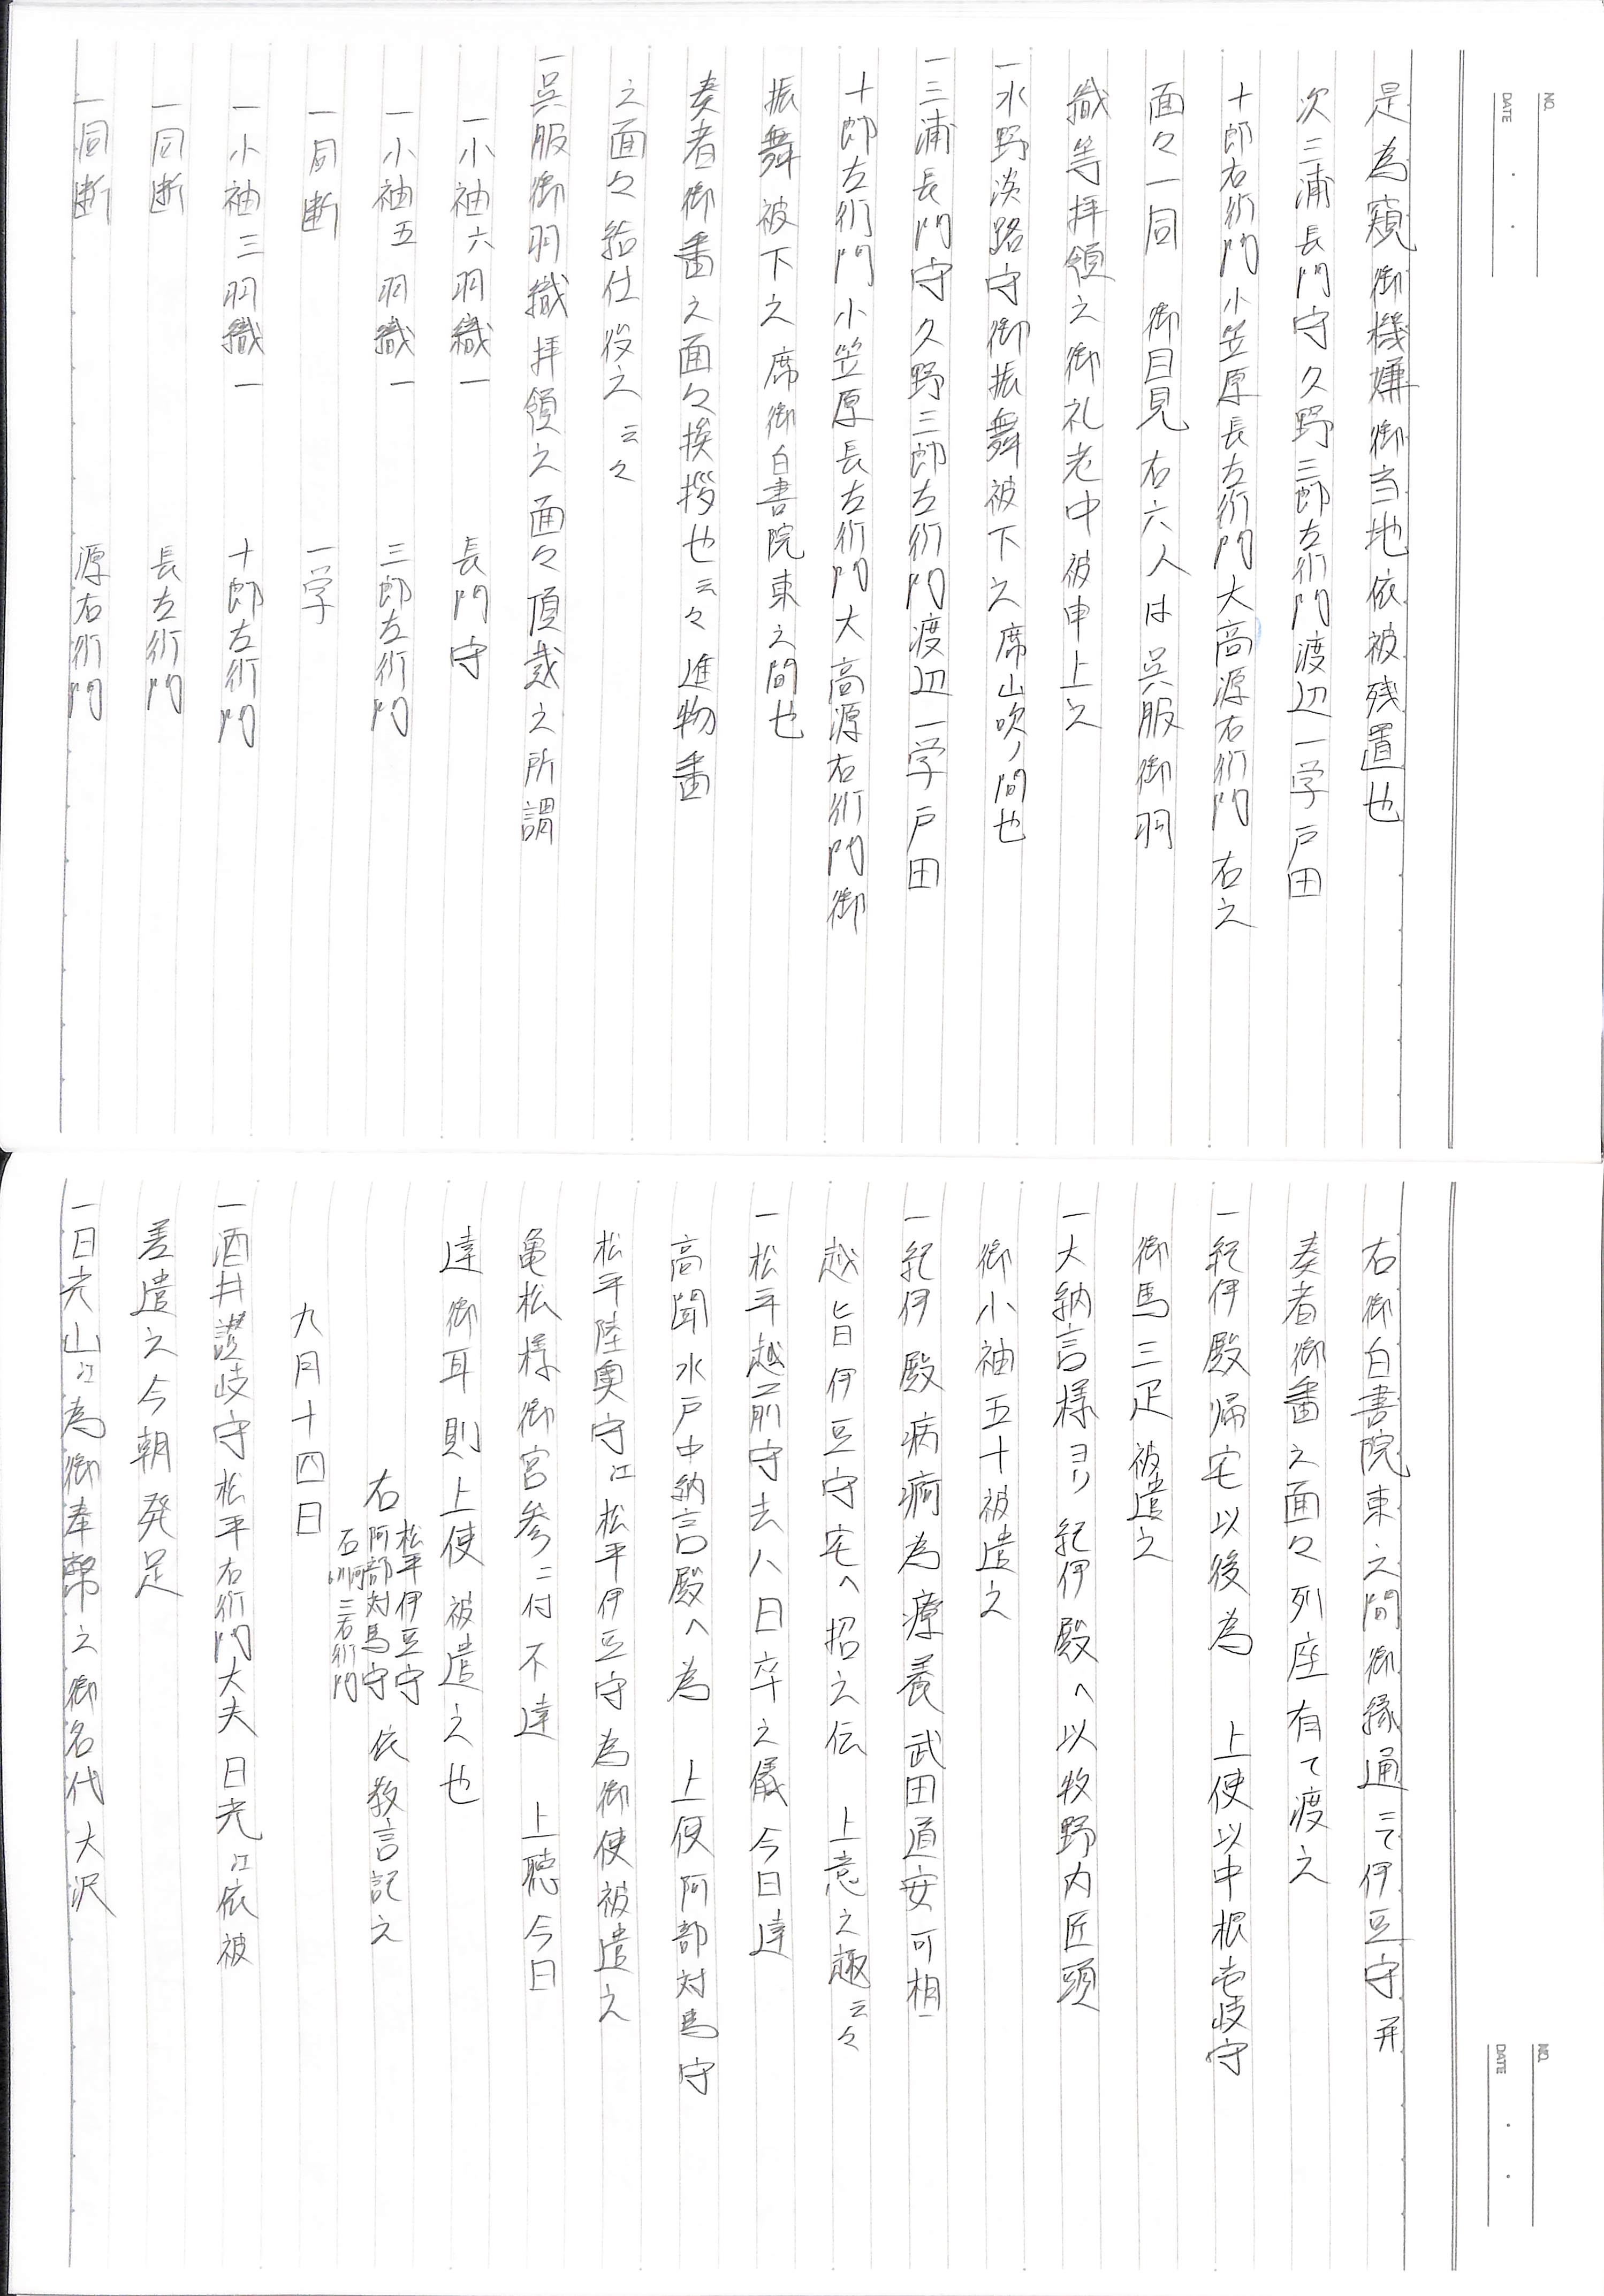 NO.
DATE
是為窺御機嫌御当地依被残置也
次三浦長門守久野三郎左衛門渡辺一学戸田
十郎右衛門小笠原長左衛門大高源右衛門右之
面々一同　御目見右六人は呉服御羽
織等拝領之御礼老中被申上之
一水野淡路守御振舞被下之席山吹ノ間也
一三浦長門守久野三郎左衛門渡辺一学戸田
十郎左衛門小笠原長左衛門大高源右衛門御
振舞被下之席御白書院東之間也
奏者御番之面々挨拶也云々進物番
之面々給仕役之云々
一呉服御羽織拝領之面々頂戴之所謂
一小袖六羽織一　長門守
一小袖五羽織一　三郎左衛門
一同断　一学
一小袖三羽織一　十郎左衛門
一同断　長左衛門
一同断　源右衛門
NO.
DATE
右御白書院東之間御縁通ニて伊豆守并
奏者御番之面々列座有て渡之
一紀伊殿帰宅以後為　上使以中根壱岐守
御馬三疋被遣之
一大納言様ヨリ紀伊殿へ以牧野内匠頭
御小袖五十被遣之
一紀伊殿病痾為療養武田道安可相
越旨伊豆守宅へ招之伝　上意之趣云々
一松平越前守去八日卒之儀今日達
高聞水戸中納言殿へ為　上使阿部対馬守
松平陸奥守江松平伊豆守為御使被遣之
亀松様御宮参ニ付不達　上聴今日
達御耳則上使被遣之也
右
松平伊豆守
阿部対馬守
石河三右衛門
依教言記之
九月十四日
一酒井讃岐守松平右衛門大夫日光江依被
差遣之今朝発足
一日光山江為御奉幣之御名代大沢